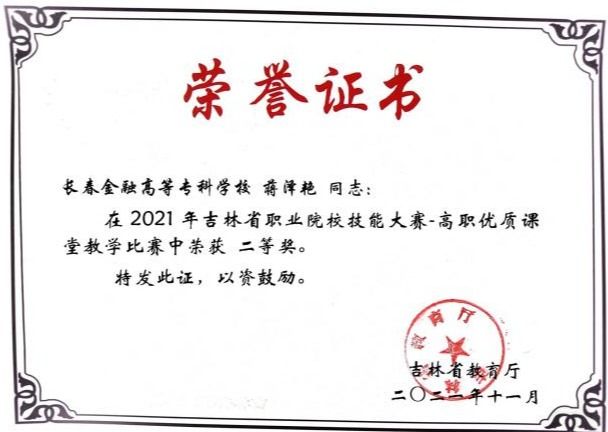 荣誉证书
长春金融高等专科学校 蒋泽艳 同志：
在 2021 年吉林省职业院校技能大赛-高职优质课
堂教学比赛中荣获 二等奖。
特发此证，以资鼓励。
吉林省教育厅
吉林省教育厅
二〇二一年十一月